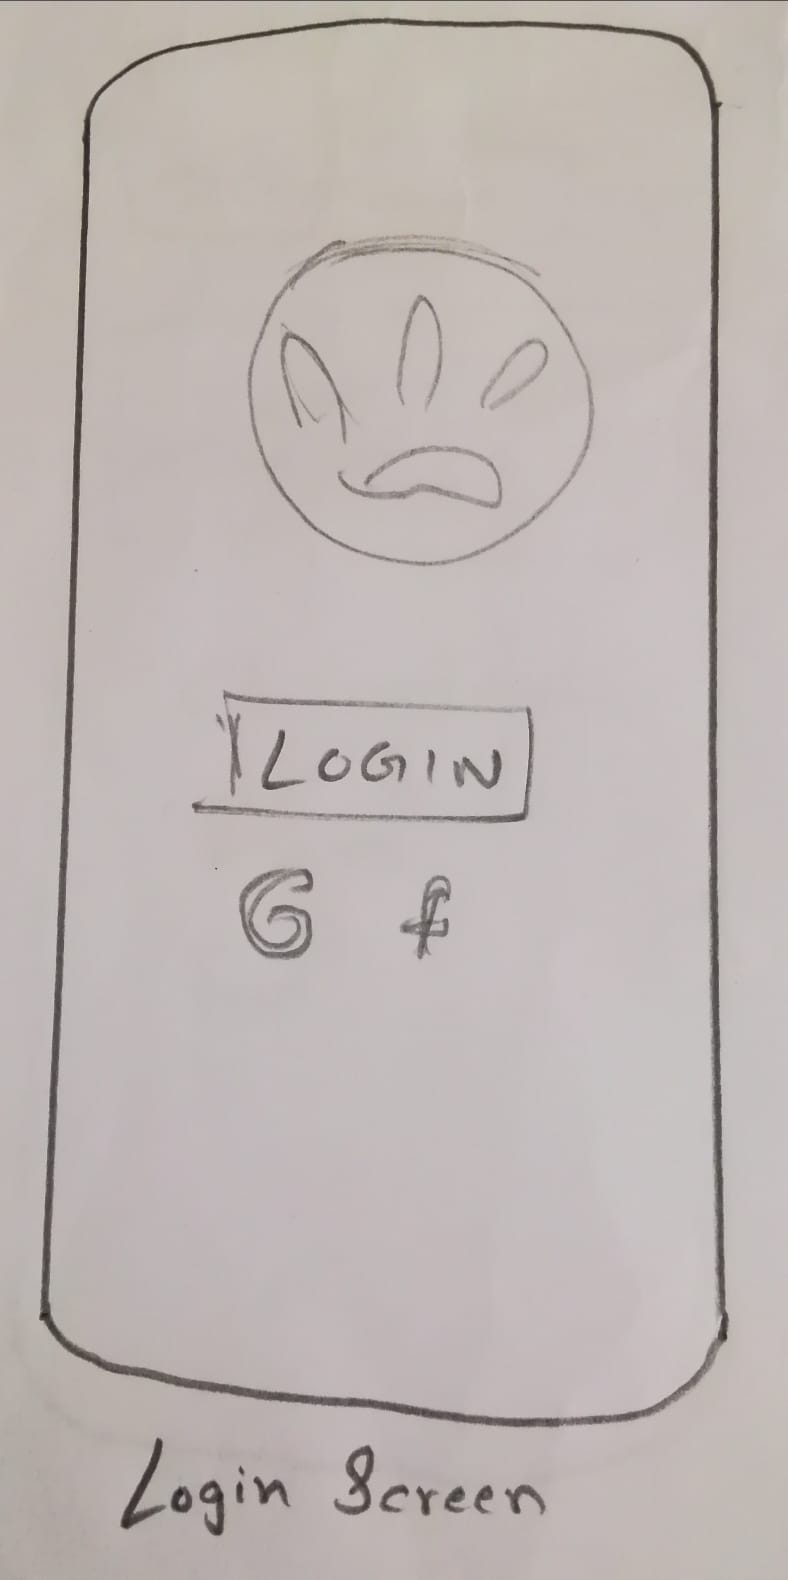 LOGIN
G f
Login Screen